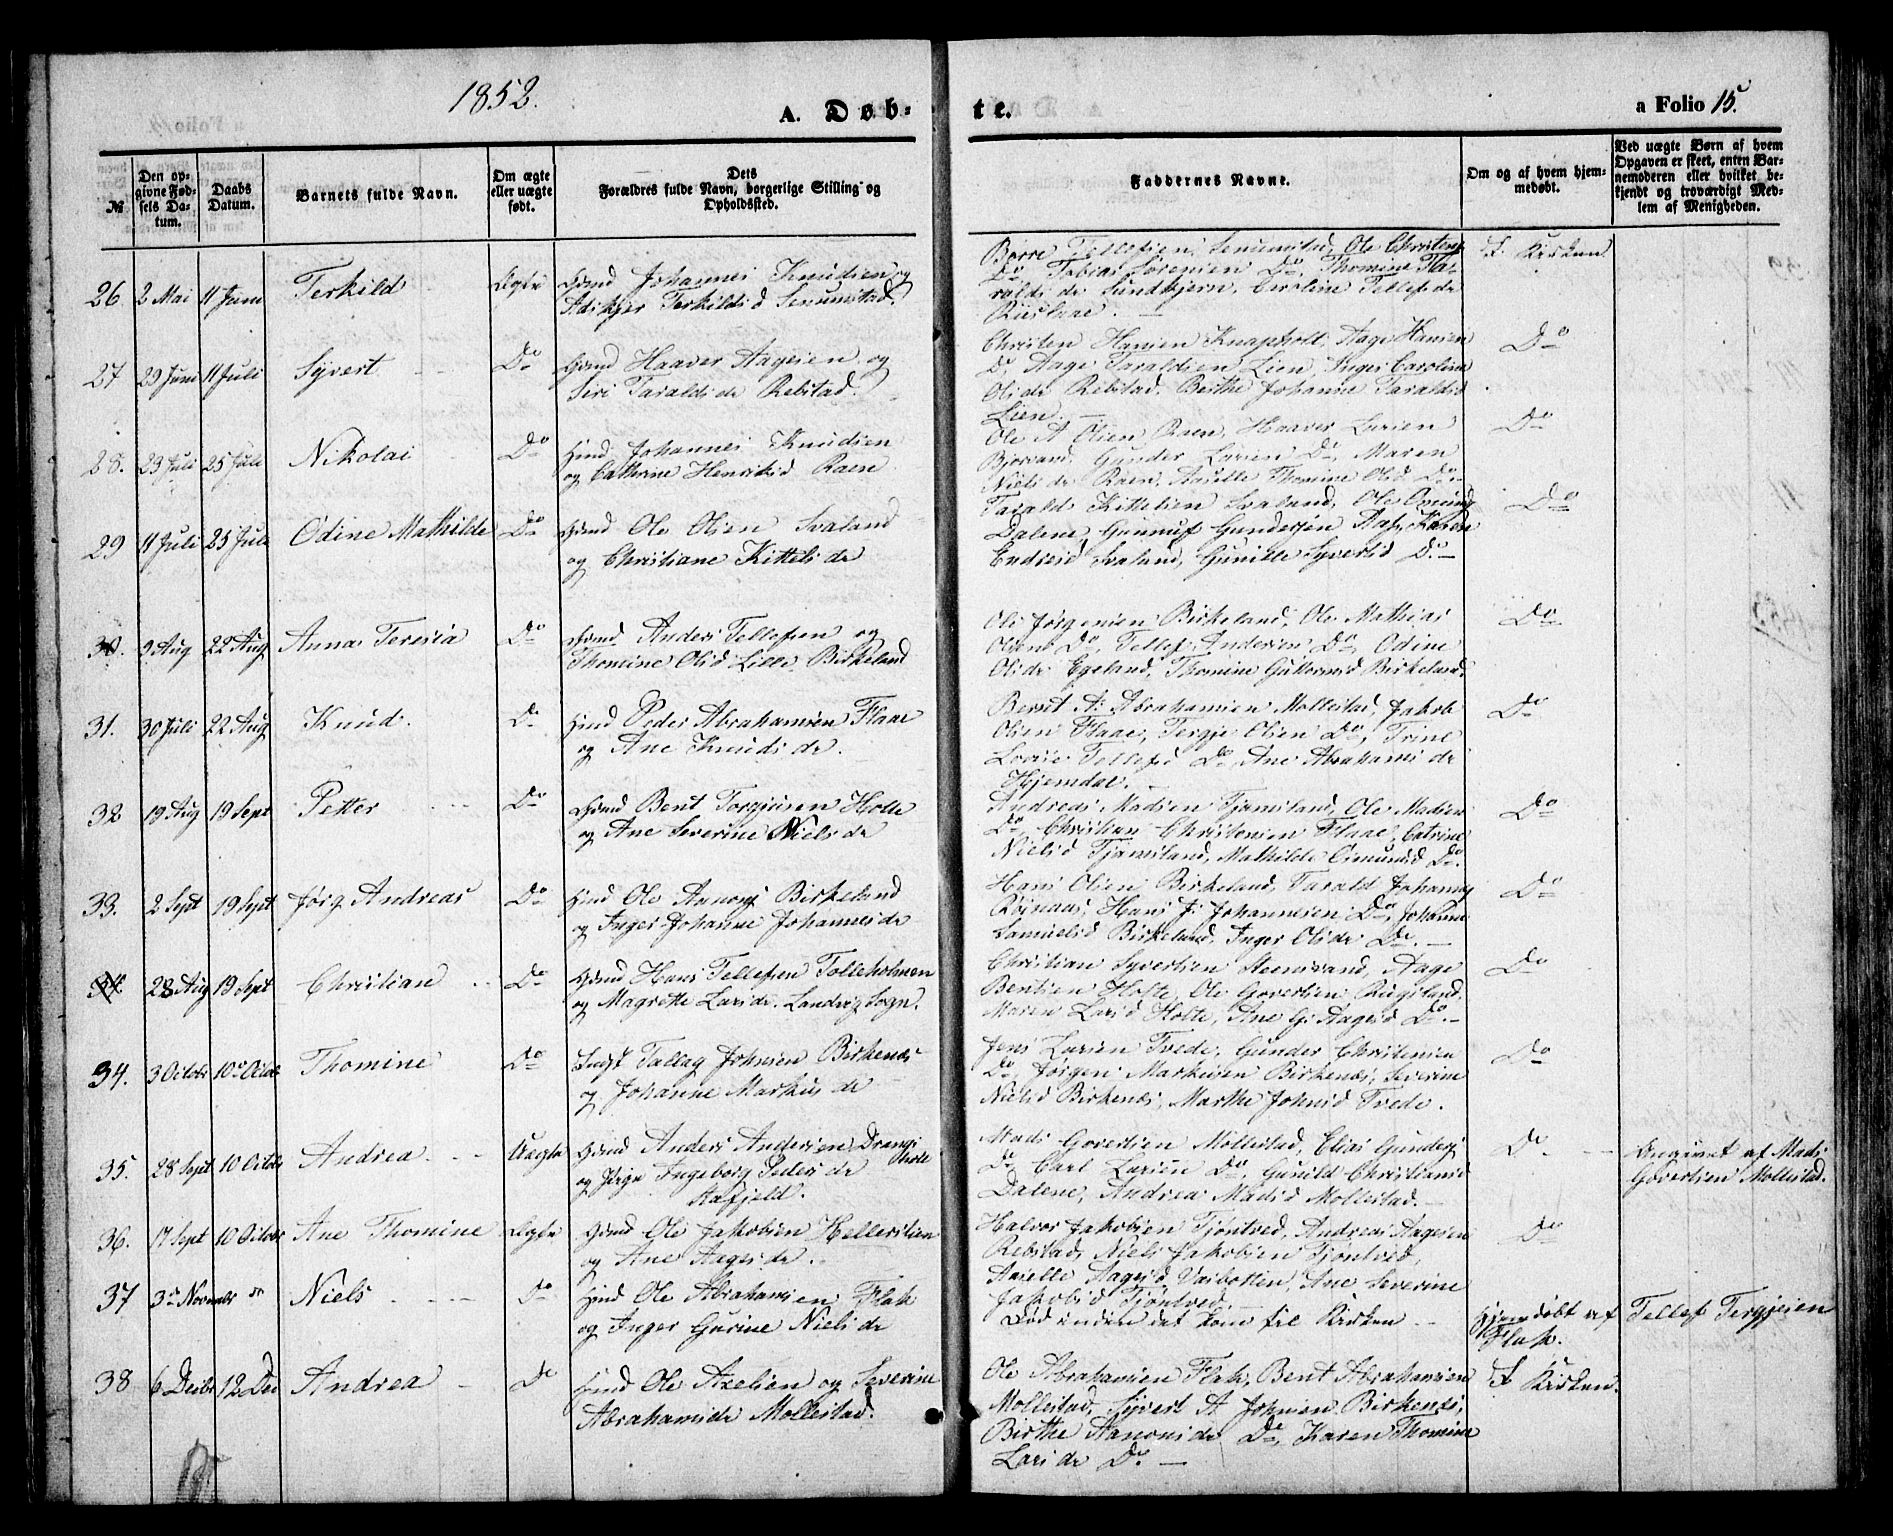 1852.
A. Døb-
te.
a Folio 15.
№
Den op-
givne Fød-
sels Da-
tum.
Daabs
Datum.
Barnets fulde Navn.
Om ægte
eller uægte
født.
Dets
Forældres fulde Navn, borgerlige Stilling og
Opholdssted.
Faddernes Navne.
Om og af hvem hjem-
medøbt.
Ved uægte Børn af hvem
Opgaven er skeet, enten Bar-
nemoderen eller hvilket be-
kjendt og troværdigt Med-
lem af Menigheden.
26 2 Mai 11 Juni Terkild Ægte Gmd Johannes Knudsen og
Terkildsd Senumstad.
Børre Tellefsen Senumstad, Ole Christens
Do Tobias Sørensen Do, Thomine Ta-
raldsdr Sundtjern, Caroline Tellefsdr
I Kirken
27 29 Juni 11 Juli Syvert Do Gmd Haaver Aagesen og
Siri Taraldsdr Rebstad.
Christen Hansen Knapholt, Aage Hansen
Do Aage Taraldsen Lien, Inger Caroline
Olsdr Rebstad, Berthe Johanne Taraldsd
Lien.
Do
28. 23 Juli 25 Juli Nikolai Do Hmd Johannes Knudsen
og Cathrine Henriksd Raen
Ole A Olsen Raen, Haaver Larsen
Bjorvand, Gunder Larsen Do, Maren
Nielsdr Raen, Aaselle Thomine Olsd Do
Do
29 11 Juli 25 Juli Odine Mathilde Do Gmd Ole Olsen Svaland
og Christiane Kittelsdr
Tarald Kittelsen Svaland, Ole Omund
Dalene, Gunnuf Gundersen Aas, Karen
Endresd Svaland, Gunille Syvertsd Do
Do
30. 9 Aug 22 Aug Anna Teresia Do Gmd Anders Tellefsen og
Thomine Olsd Lille Birkeland
Ole Jørgensen Birkeland, Ole Mathias
Olsen Do, Tellef Andersen Do, Odine
Olsdr Egeland, Thomine Guttormsd Birkeland.
Do
31. 30 Juli 22 Aug Knud. Do Hmd Peder Abrahamsen Flaae
og Ane Knudsdr.
Bernt A. Abrahamsen Mollestad, Jakob
Olsen Flaae, Tergje Olsen Do, Trine
Lovise Tellefsd Do, Ane Abrahamsdr
Hjemdal.
Do
32 19 Aug 19 Sept Petter Do Gmd Bent Torgjusen Holte
og Ane Severine Nielsdr
Andreas Madsen Tjamsland, Ole Madsen
Do, Christian Christensen Flaae, Catrine
Nielsd Tjamsland, Mathilde Osmunsd Do.
Do
33. 2 Sept 19 Sept Jørg. Andreas Do Hmd Ole Aanons Birkeland
og Inger Johanne Johannesdr
Hans Olsen Birkeland, Tarald Johannes
Røinaas, Hans J. Johannesen Do, Johanne
Samuelsd Birkeland, Inger Olsdr Do.
Do
34. 28 Aug 19 Sept Christian Do Gmd Hans Tellefsen Tolleholmen
og Magrette Larsdr. Landvig Sogn.
Christian Syvertsen Steensvand, Aage
Bentsen Holte, Ole Govertsen Rugsland,
Maren Larsd Holte, Ane G. Aagesd Do.
Do
34. 3 Octobr 10 Octobr Thomine Do Tallag Johnsen Birkenæs
og Johanne Markusdr
Jens Larsen Tvede, Gunder Christensen
Do, Jørgen Markusen Birkenæs, Severine
Nielsd Birkenæs, Marthe Johnsd Tvede.
Do
35. 28 Sept 10 Octobr Andrea Uægte Gmd Anders Andersen Drangs
holt
og Pige Ingeborg Pedersdr
Aafjeld.
Mads Govertsen Mollestad, Elias Gunders
Do Carl Larsen Do, Gunild Christians
Dalene, Andrea Madsd Mollestad.
Do
Angivet af Mads
Govertsen Mollestad.
36. 17 Sept 10 Octobr Ane Thomine Ægte Gmd Ole Jakobsen Hellerslien
og Ane Aagesdr.
Halvor Jakobsen Tjøntved, Andreas Aagesen
Rebstad, Niels Jakobsen Tjøntved,
Aaselle Aagesd Vasbotten, Ane Severine
Jakobsd Tjøntved
Do
37 3 Novembr Niels Do Hmd Ole Abrahamsen Flak
og Inger Gurine Nielsdr
Død inden det kom til Kirken
Hjemdøbt af
Flak.
Tellef Tergjesen
38 6 Decbr 12 Dec Andrea Do Hmd Ole Axelsen og Severine
Abrahamsdr Mollestad.
Ole Abrahamsen Flak, Bent Abrahamsen
Mollestad, Syvert A Johnsen Birkenæs,
Birthe Aanonsdr Do, Karen Thomine
Larsdr Do
I Kirken.